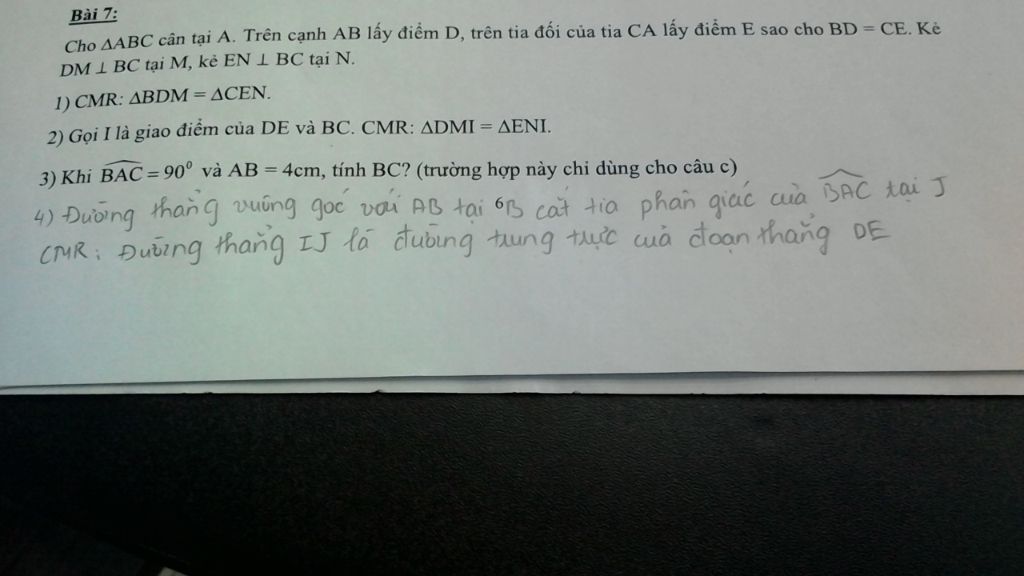 Bài 7:
Cho ΔABC cân tại A. Trên cạnh AB lấy điểm D, trên tia đối của tia CA lấy điểm E sao cho BD = CE. Kẻ
DM ⊥ BC tại M, kẻ EN ⊥ BC tại N.
1) CMR: ΔBDM = ΔCEN.
2) Gọi I là giao điểm của DE và BC. CMR: ΔDMI = ΔENI.
3) Khi $\widehat{BAC}$ = 90⁰ và AB = 4cm, tính BC? (trường hợp này chỉ dùng cho câu c)
4) Đường thẳng vuông góc với AB tại B cắt tia phân giác của $\widehat{BAC}$ tại J
CMR: Đường thẳng IJ là đường trung trực của đoạn thẳng DE